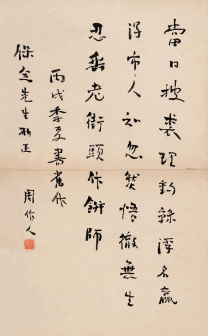 當日披裘理釣絲浮名贏
得市人知忽然悟徹無生
忍垂老街頭作餅師
丙戌季夏書舊作
保先生正
周作人